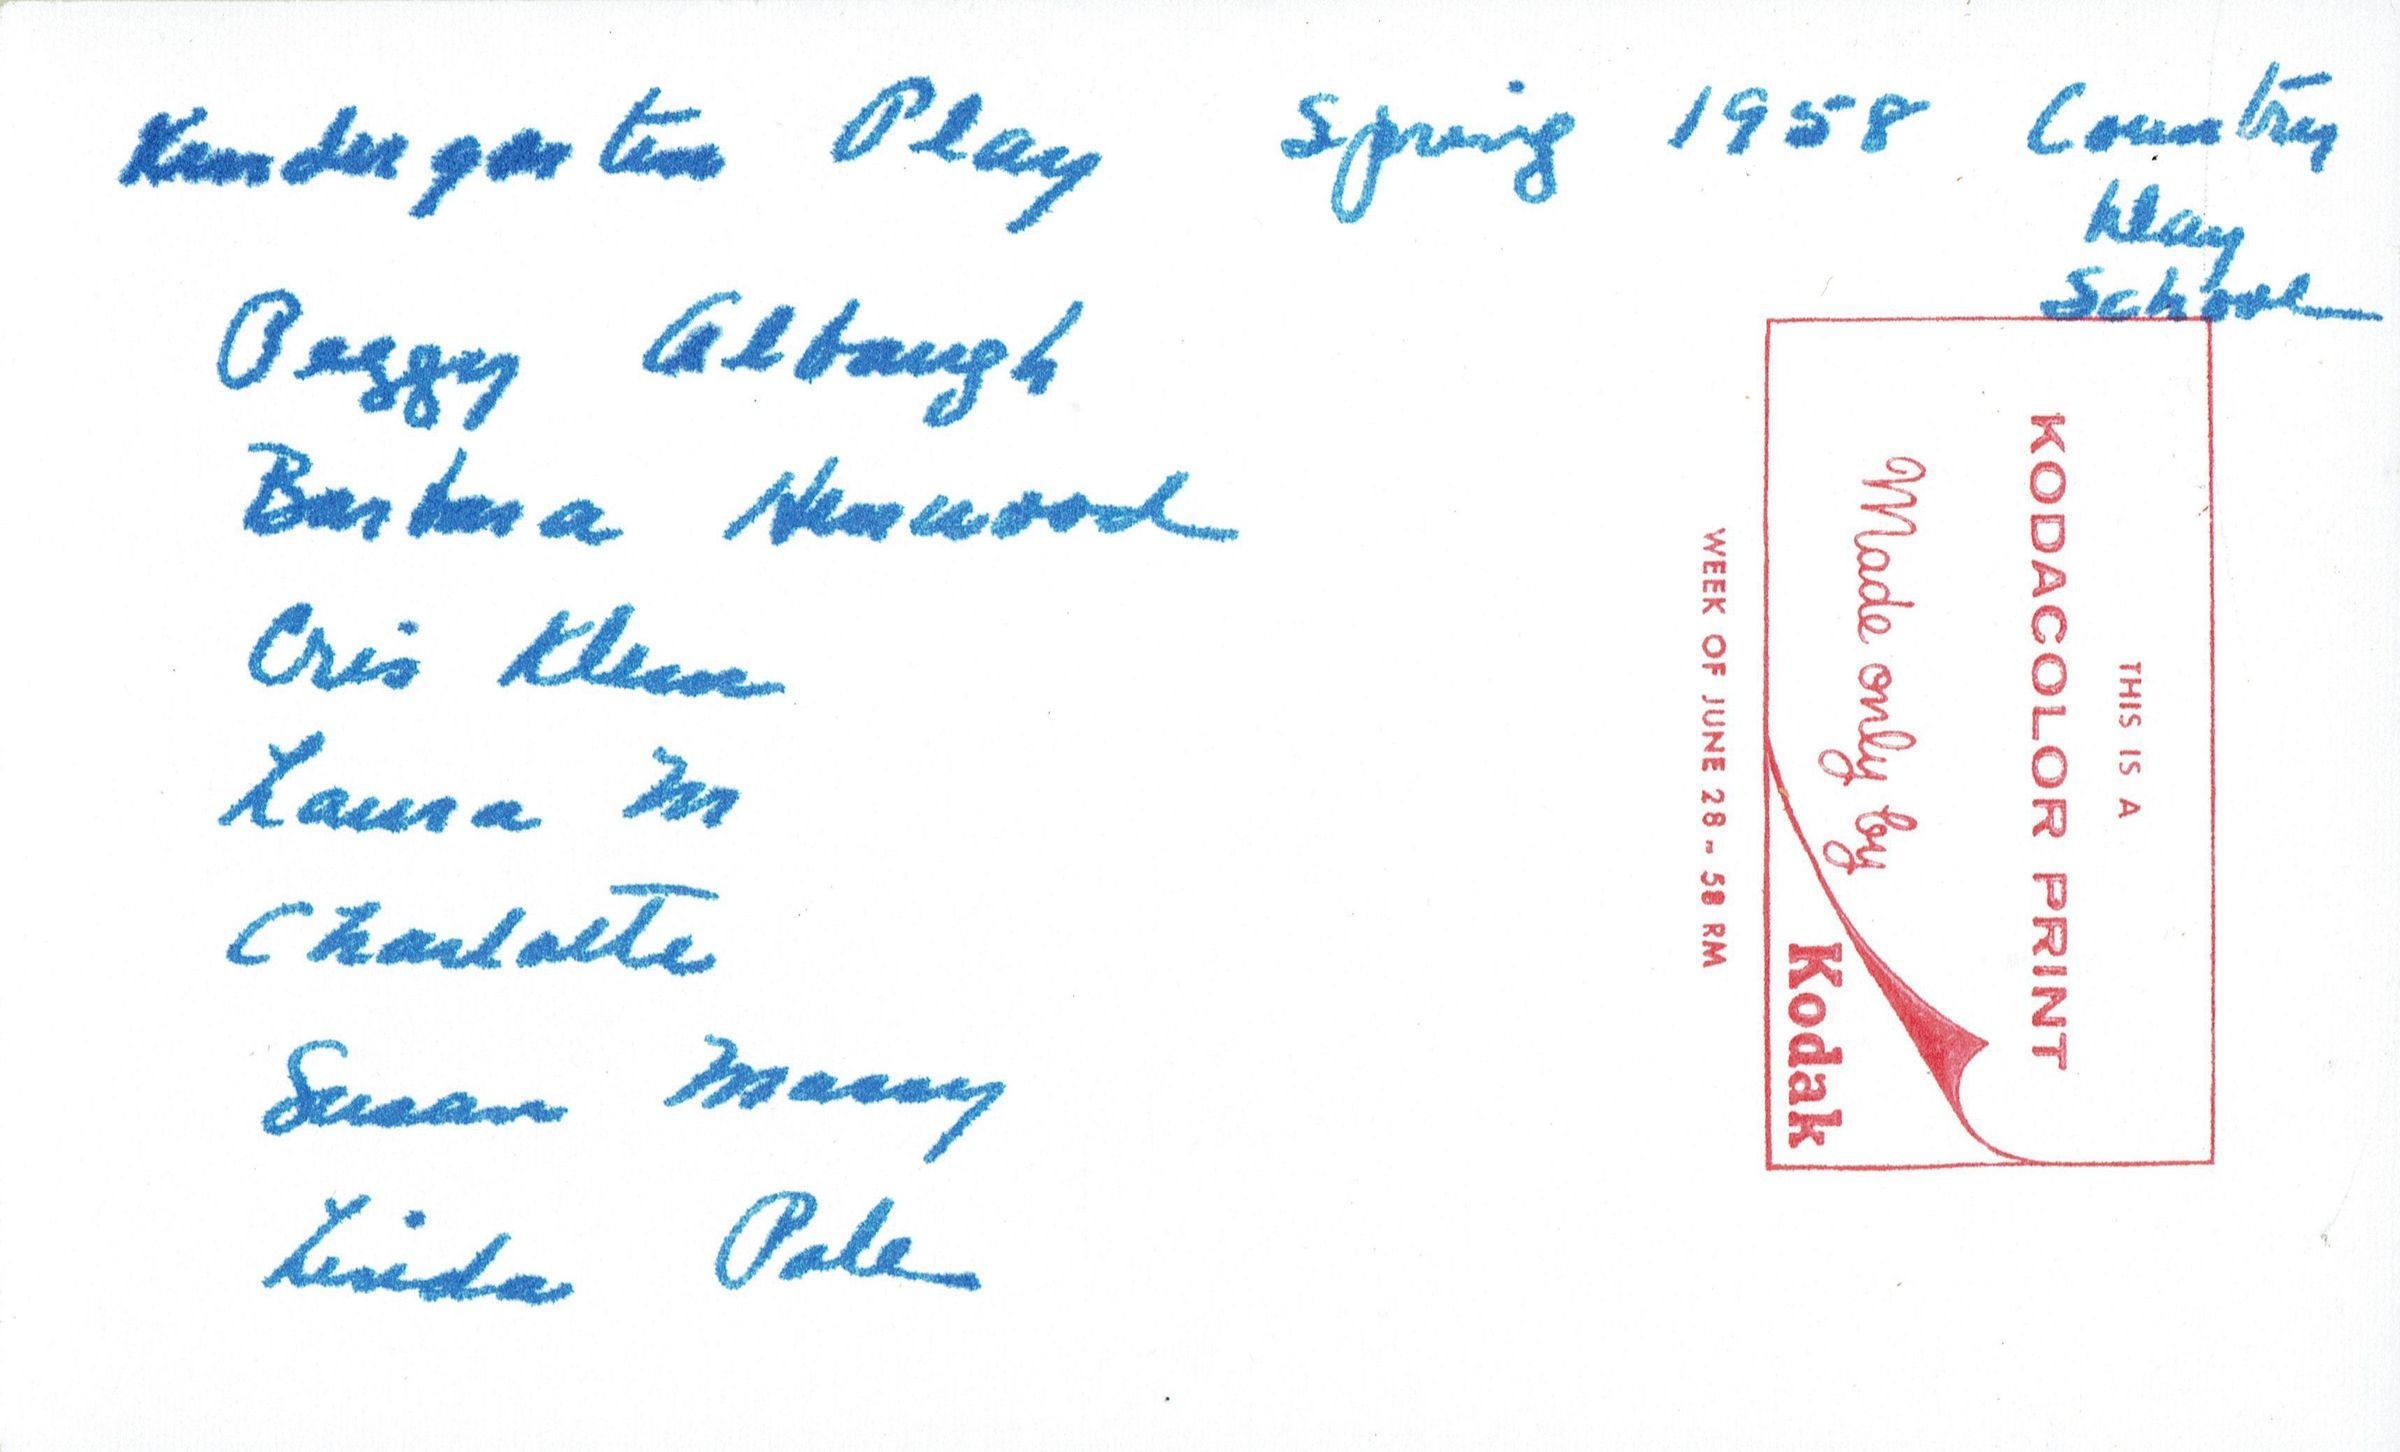 Kindergarten Play Spring 1958 Country
Day
School
Peggy Albaugh
Barbara Henwood
Cris Klein
Laura M
Charlotte
Susan
Linda Pole
THIS IS A
KODACOLOR PRINT
Made only by
Kodak
WEEK OF JUNE 28-58 RM